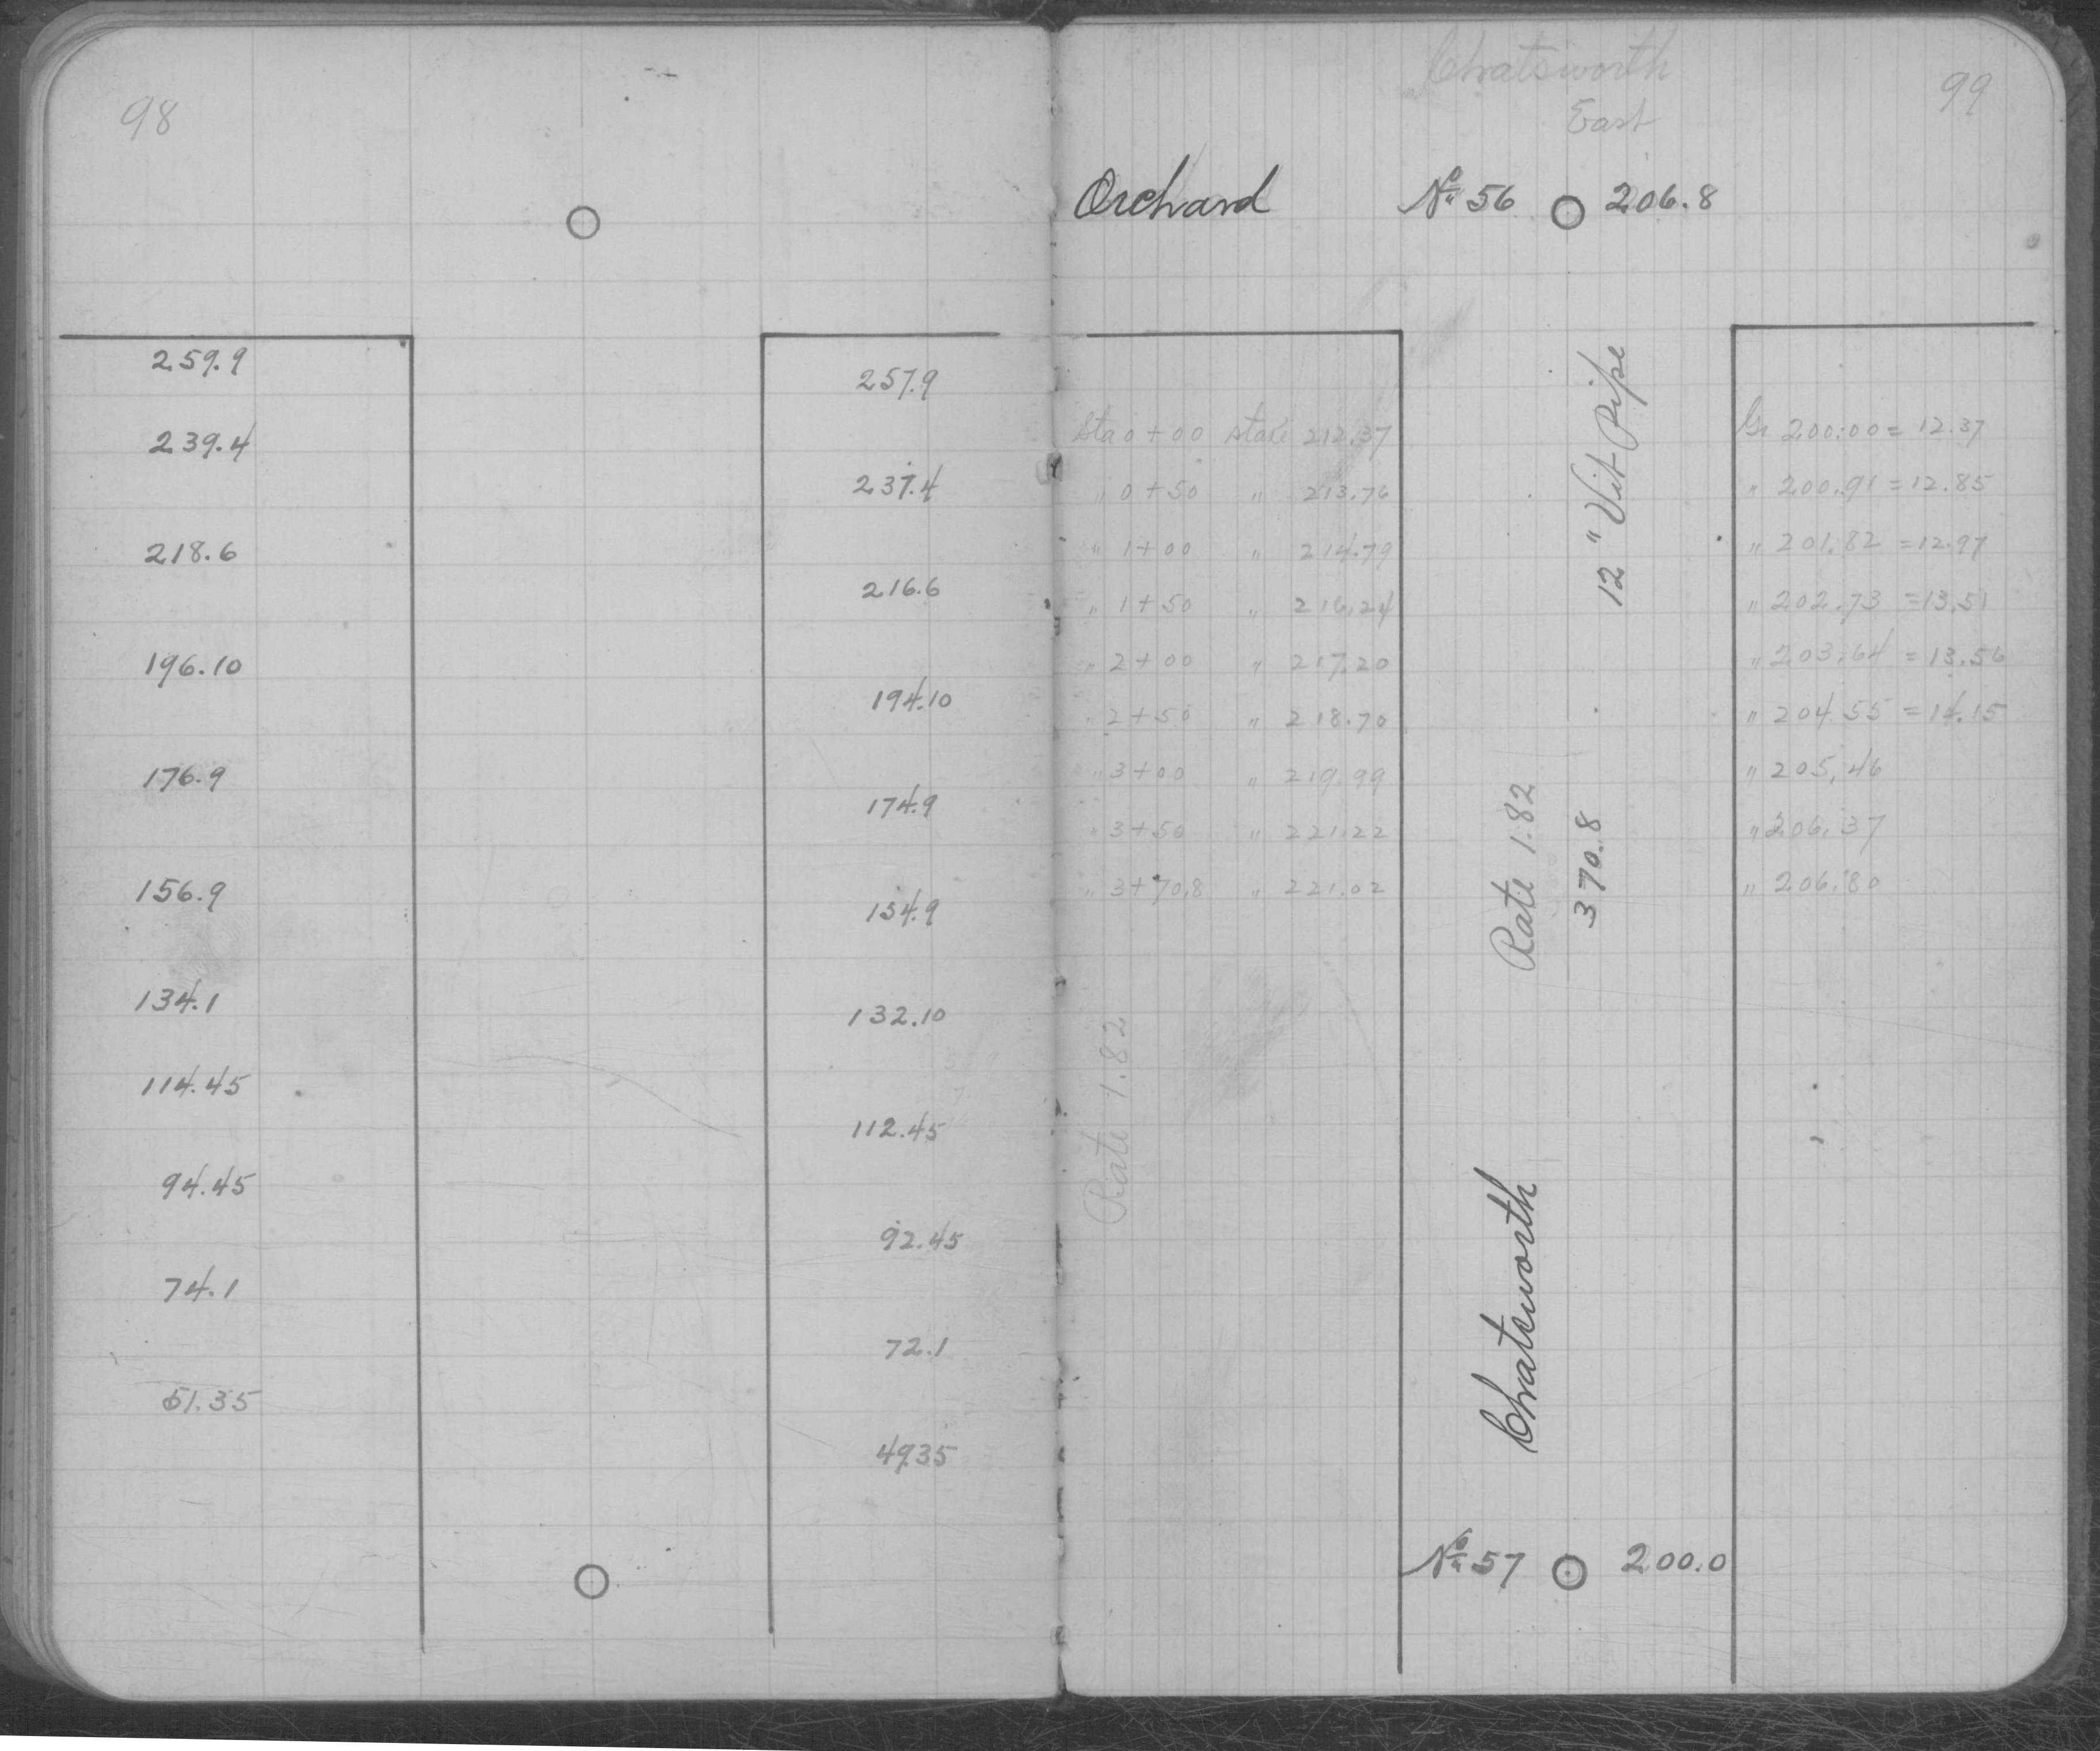 98
259.9
257.9
239.4
237.4
218.6
216.6
196.10
194.10
176.9
174.9
156.9
154.9
134.1
132.10
114.45
112.45
94.45
92.45
74.1
72.1
51.35
49.35
99
Chatsworth
East
Orchard № 56 206.8
Sta 0+00 stake 212.37 Gr 200.00 = 12.37
" 0+50 " 213.76 " 200.91 = 12.85
" 1+00 " 214.79 " 201.82 = 12.97
" 1+50 " 216.24 " 202.73 = 13.51
" 2+00 " 217.20 " 203.64 = 13.56
" 2+50 " 218.70 " 204.55 = 14.15
" 3+00 " 219.99 " 205.46
" 3+50 " 221.22 " 206.37
" 3+70.8 " 221.02 " 206.80
12" Vit Pipe
Rate 1.82
370.8
Rate 1.82
Chatsworth
№ 57 200.0